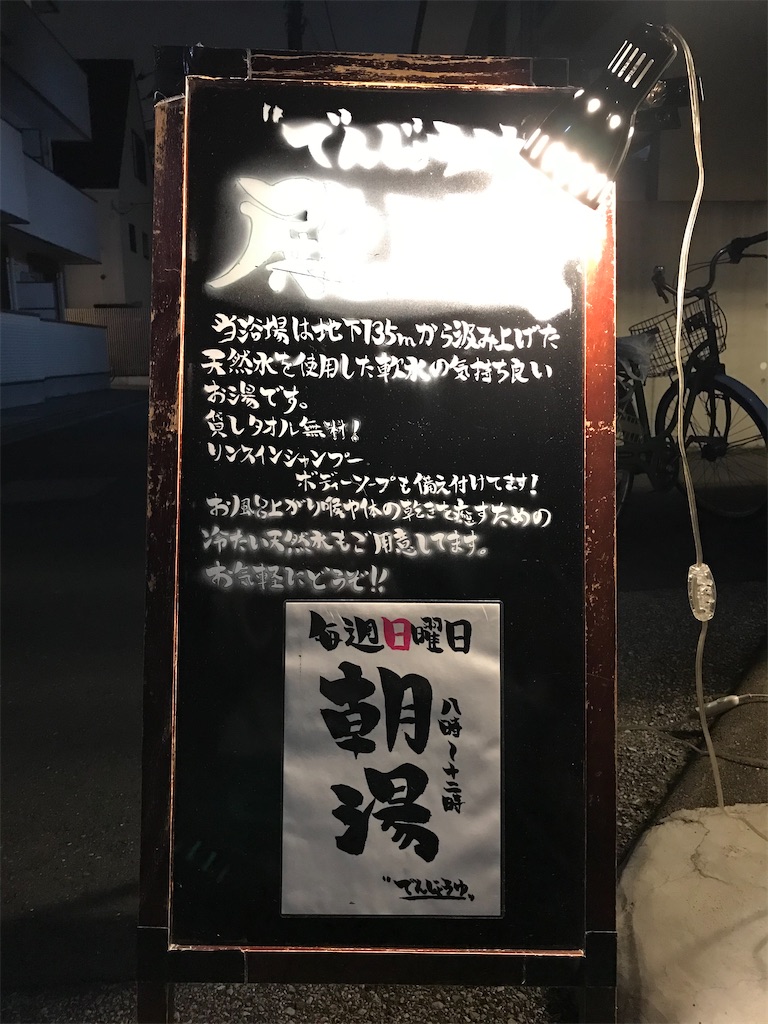 "でんじょうゆ
殿
当浴場は地下135mから汲み上げた
天然水を使用した軟水の気持ち良い
お湯です。
貸しタオル無料!
リンスインシャンプー
ボディーソープも備え付けてます!
お風呂上がり喉や体の乾きを癒すための
冷たい天然水もご用意してます。
お気軽にどうぞ!!
毎週日曜日
朝湯
八時〜十二時
"でんじょうゆ"